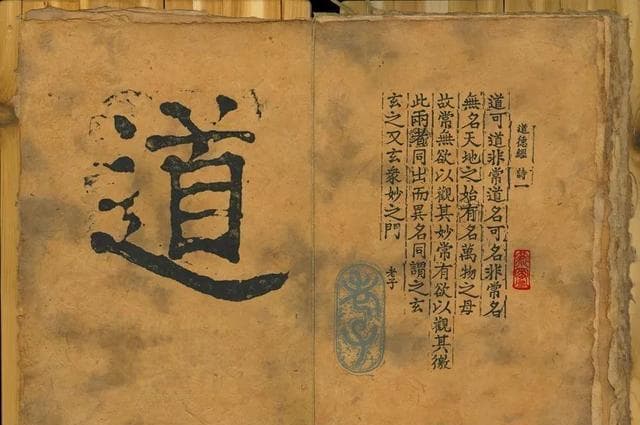 道
道德經 詩一
道可道非常道名可名非常名
無名天地之始有名萬物之母
故常無欲以觀其妙常有欲以觀其徼
此兩者同出而異名同謂之玄
玄之又玄衆妙之門
老子